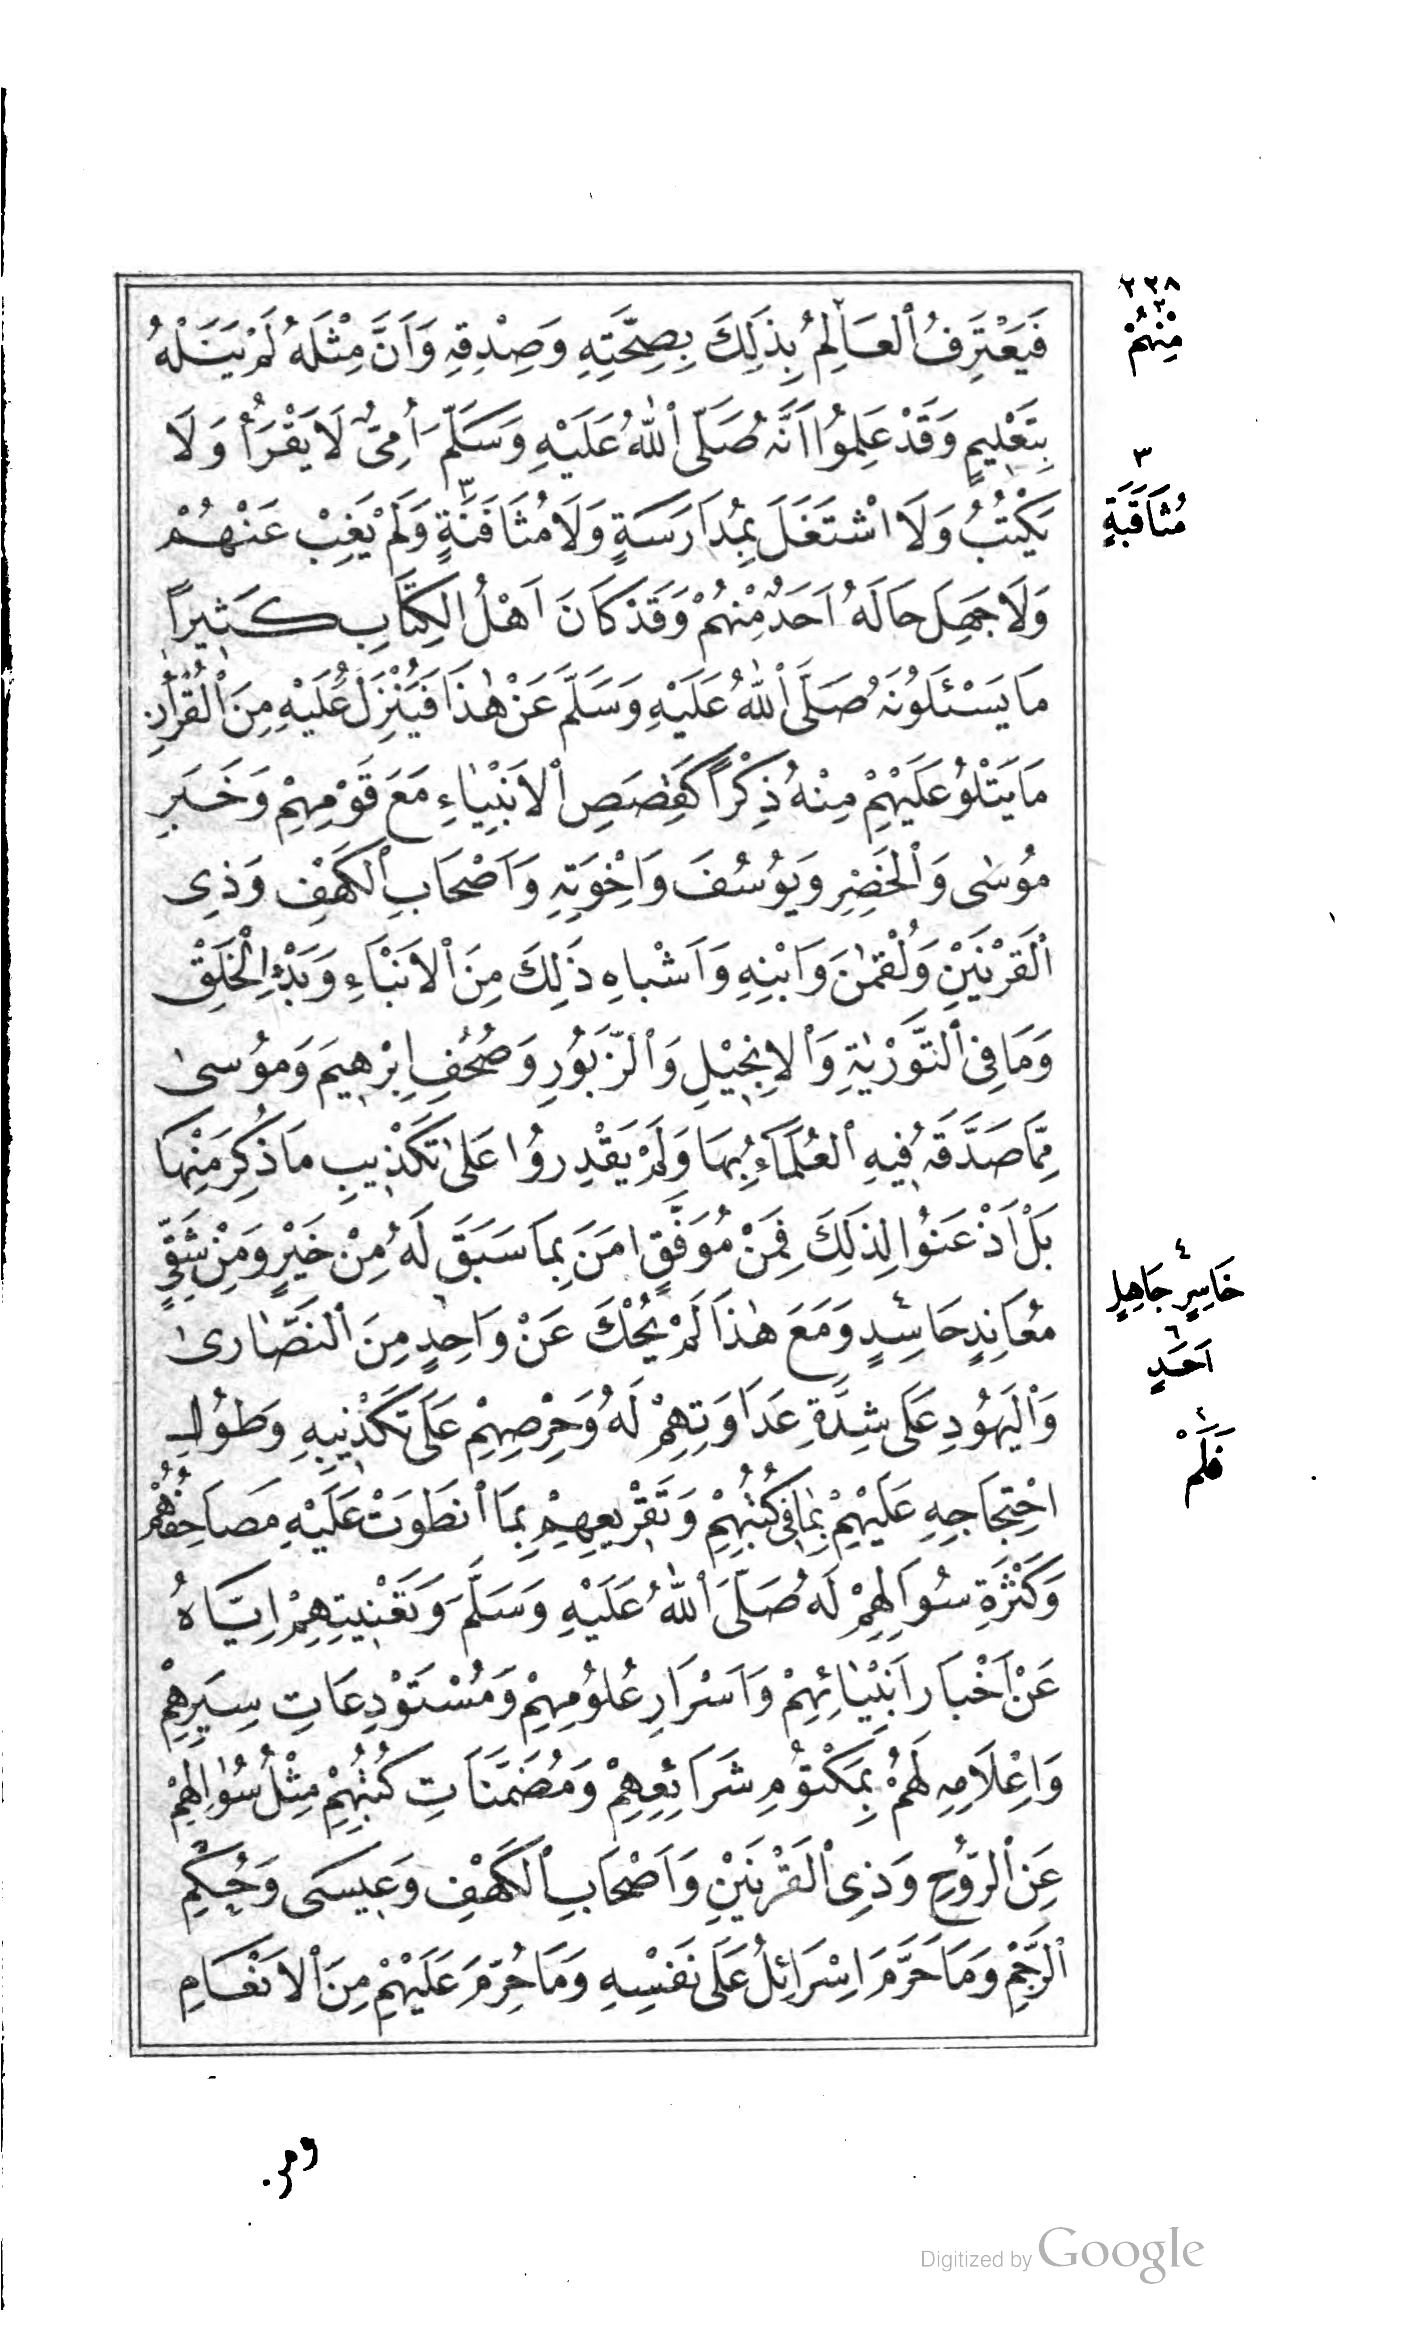 ٢٣٨
٢
مِنْهُمْ
فَيَعْتَرِفُ ٱلْعَالِمُ٢ بِذٰلِكَ بِصِحَّتِهِ وَصِدْقِهِ وَاَنَّ مِثْلَهُ لَمْ يَنَلْهُ
بِتَعْلِيمٍ وَقَدْ عَلِمُوا اَنَّهُ صَلَّى ٱللّٰهُ عَلَيْهِ وَسَلَّمَ اُمِّىٌّ لَا يَقْرَأُ وَلَا
٣
مُثَاقَبَةٍ
يَكْتُبُ وَلَا اشْتَغَلَ بِمُدَارَسَةٍ وَلَا مُثَافَنَةٍ٣ وَلَمْ يَغِبْ عَنْهُمْ
وَلَا جَهِلَ حَالَهُ اَحَدٌ مِنْهُمْ وَقَدْ كَانَ اَهْلُ الْكِتَابِ كَثِيراً
مَا يَسْئَلُونَهُ صَلَّى ٱللّٰهُ عَلَيْهِ وَسَلَّمَ عَنْ هٰذَا فَيُنْزِلُ عَلَيْهِ مِنَ ٱلْقُرْاٰنِ
مَا يَتْلُو عَلَيْهِمْ مِنْهُ ذِكْرًا كَقِصَصِ ٱلْاَنْبِيَاءِ مَعَ قَوْمِهِمْ وَخَبَرِ
مُوسٰى وَٱلْخَضِرِ وَيُوسُفَ وَاِخْوَتِهِ وَاَصْحَابِ ٱلْكَهْفِ وَذِى
ٱلْقَرْنَيْنِ وَلُقْمٰنَ وَابْنِهِ وَاَشْبَاهِ ذٰلِكَ مِنَ ٱلْاَنْبَاءِ وَبَدْءِ الْخَلْقِ
وَمَا فِى ٱلتَّوْرٰيةِ وَٱلْاِنْجِيْلِ وَٱلزَّبُورِ وَصُحُفِ اِبْرٰهِيمَ وَمُوسٰى
مِمَّا صَدَّقَهُ فِيهِ ٱلْعُلَمَاءُ بِهَا وَلَمْ يَقْدِرُوا عَلٰى تَكْذِيبِ مَا ذُكِرَ مِنْهَا
بَلْ اَذْعَنُوا لِذٰلِكَ فَمِنْ مُوَفَّقٍ اٰمَنَ بِمَا سَبَقَ لَهُ مِنْ خَيْرٍ وَمِنْ شَقِىٍّ
٤
خَاسِرٍ جَاهِلٍ
٦
اَحَدٍ
مُعَانِدٍ حَاسِدٍ٤ وَمَعَ هٰذَا لَمْ يُحْكَ عَنْ وَاحِدٍ٦ مِنَ ٱلنَّصَارٰى
وَٱلْيَهُودِ عَلَى شِدَّةِ عَدَاوَتِهِمْ لَهُ وَحِرْصِهِمْ عَلَى تَكْذِيبِهِ وَطُولِ
فَلَمْ
احْتِجَاجِهِ عَلَيْهِمْ بِمَا فِى كُتُبِهِمْ وَتَقْرِيعِهِمْ بِمَا ٱنْطَوَتْ عَلَيْهِ مَصَاحِفُهُمْ
وَكَثْرَةِ سُوَالِهِمْ لَهُ صَلَّى ٱللّٰهُ عَلَيْهِ وَسَلَّمَ وَتَعْنِيتِهِمْ اِيَّاهُ
عَنْ اَخْبَارِ اَنْبِيَائِهِمْ وَاَسْرَارِ عُلُومِهِمْ وَمُسْتَوْدِعَاتِ سِيَرِهِمْ
وَاِعْلَامِهِ لَهُمْ بِمَكْتُومِ شَرَائِعِهِمْ وَمُضَمَّنَاتِ كُتُبِهِمْ مِثْلُ سُوَالِهِمْ
عَنِ ٱلرُّوحِ وَذِى ٱلْقَرْنَيْنِ وَاَصْحَابِ ٱلْكَهْفِ وَعِيسَى وَحُكْمِ
ٱلرَّجْمِ وَمَا حَرَّمَ اِسْرَائِلُ عَلَى نَفْسِهِ وَمَا حُرِّمَ عَلَيْهِمْ مِنَ ٱلْاَنْعَامِ
Digitized by Google